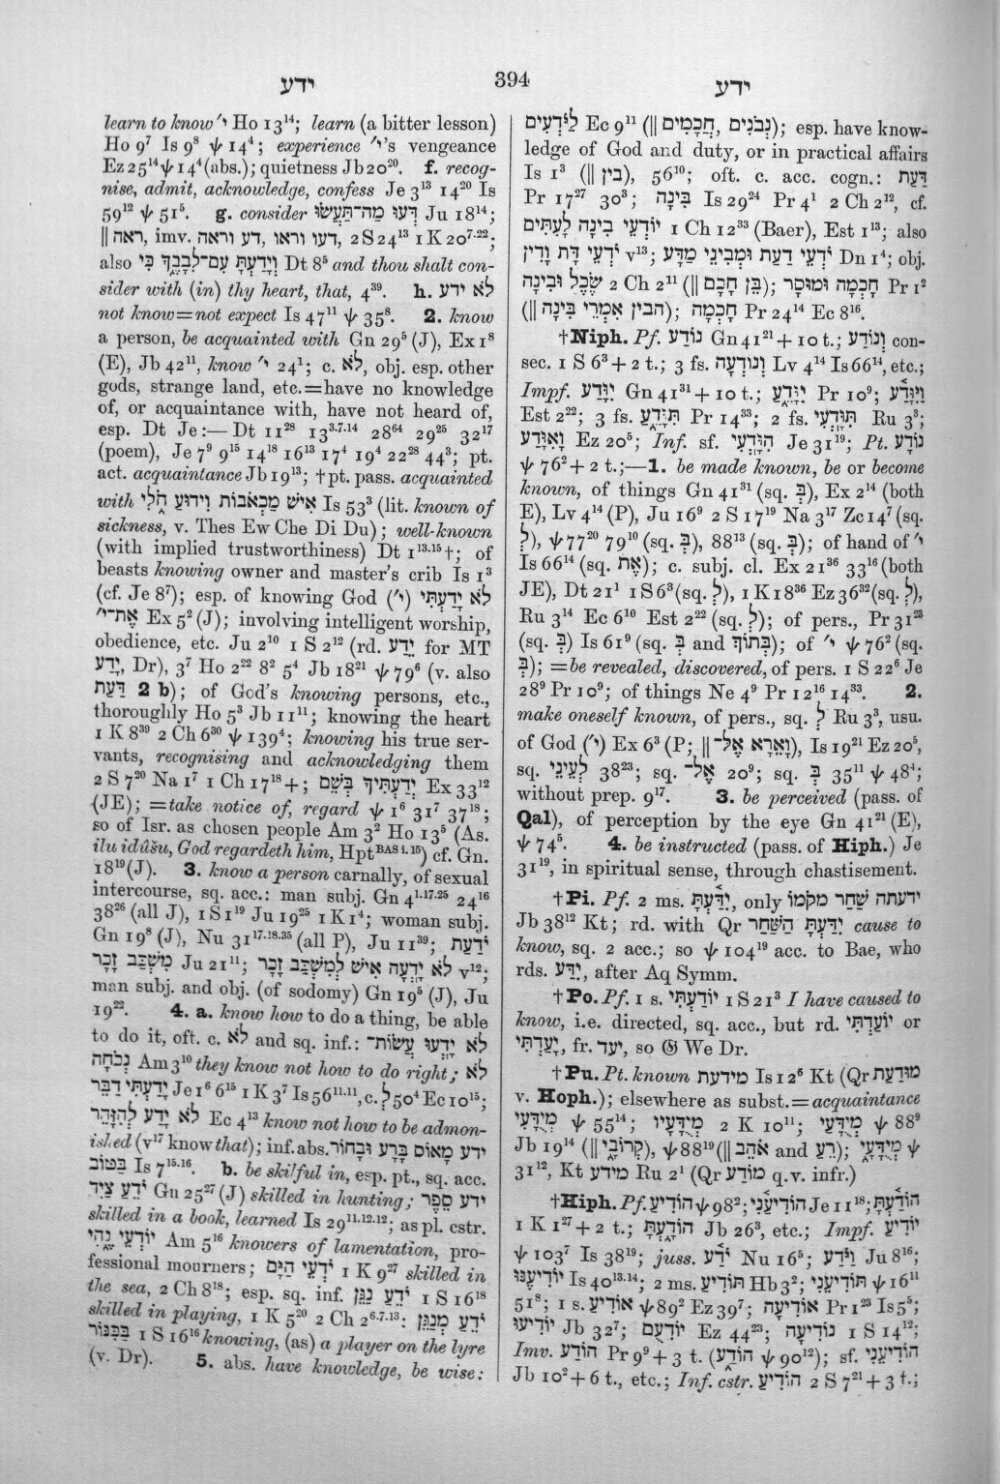 ידע
394
ידע
learn to know י׳ Ho 13¹⁴; learn (a bitter lesson)
Ho 9⁷ Is 9⁸ ψ 14⁴; experience י׳'s vengeance
Ez 25¹⁴ ψ 14⁴ (abs.); quietness Jb 20²⁰. f. recog-
nise, admit, acknowledge, confess Je 3¹³ 14²⁰ Is
59¹² ψ 51⁵. g. consider דְּעוּ מַה־תַּעֲשׂוּ Ju 18¹⁴;
‖ ראה, imv. דעו וראו, דע וראה, 2 S 24¹³ 1 K 20⁷·²²;
also וְיָדַעְתָּ עִם־לְבָבֶךָ כִּי Dt 8⁵ and thou shalt con-
sider with (in) thy heart, that, 4³⁹. h. לֹא ידע
not know=not expect Is 47¹¹ ψ 35⁸. 2. know
a person, be acquainted with Gn 29⁵ (J), Ex 1⁸
(E), Jb 42¹¹, know י׳ 24¹; c. לֹא, obj. esp. other
gods, strange land, etc.=have no knowledge
of, or acquaintance with, have not heard of,
esp. Dt Je:— Dt 11²⁸ 13³·⁷·¹⁴ 28⁶⁴ 29²⁵ 32¹⁷
(poem), Je 7⁹ 9¹⁵ 14¹⁸ 16¹³ 17⁴ 19⁴ 22²⁸ 44³; pt.
act. acquaintance Jb 19¹³; †pt. pass. acquainted
with אִישׁ מַכְאֹבוֹת וִידוּעַ חֹלִי Is 53³ (lit. known of
sickness, v. Thes Ew Che Di Du); well-known
(with implied trustworthiness) Dt 1¹³·¹⁵†; of
beasts knowing owner and master's crib Is 1³
(cf. Je 8⁷); esp. of knowing God (י׳) לֹא יָדַעְתִּי
אֶת־י׳ Ex 5² (J); involving intelligent worship,
obedience, etc. Ju 2¹⁰ 1 S 2¹² (rd. יֵדַע for MT
יָדַע, Dr), 3⁷ Ho 2²² 8² 5⁴ Jb 18²¹ ψ 79⁶ (v. also
דַּעַת 2 b); of God's knowing persons, etc.,
thoroughly Ho 5³ Jb 11¹¹; knowing the heart
1 K 8³⁹ 2 Ch 6³⁰ ψ 139⁴; knowing his true ser-
vants, recognising and acknowledging them
2 S 7²⁰ Na 1⁷ 1 Ch 17¹⁸ +; יְדַעְתִּיךָ בְשֵׁם Ex 33¹²
(JE); =take notice of, regard ψ 1⁶ 31⁷ 37¹⁸;
so of Isr. as chosen people Am 3² Ho 13⁵ (As.
ilu idûšu, God regardeth him, Hpt BAS i. 15) cf. Gn.
18¹⁹ (J). 3. know a person carnally, of sexual
intercourse, sq. acc.: man subj. Gn 4¹·¹⁷·²⁵ 24¹⁶
38²⁶ (all J), 1 S 1¹⁹ Ju 19²⁵ 1 K 1⁴; woman subj.
Gn 19⁸ (J), Nu 31¹⁷·¹⁸·³⁵ (all P), Ju 11³⁹; יֹדַעַת
מִשְׁכַּב זָכָר Ju 21¹¹; לֹא יָדְעָה אִישׁ לְמִשְׁכַּב זָכָר v¹²;
man subj. and obj. (of sodomy) Gn 19⁵ (J), Ju
19²². 4. a. know how to do a thing, be able
to do it, oft. c. לֹא and sq. inf.: לֹא יָדְעוּ עֲשׂוֹת־
נְכֹחָה Am 3¹⁰ they know not how to do right; לֹא
יָדַעְתִּי דַּבֵּר Je 1⁶ 6¹⁵ 1 K 3⁷ Is 56¹¹·¹¹, c. לְ 50⁴ Ec 10¹⁵;
לֹא יָדַע לְהִזָּהֵר Ec 4¹³ know not how to be admon-
ished (v¹⁷ know that); inf. abs. ידע מָאוֹס בָּרָע וּבָחוֹר
בַּטּוֹב Is 7¹⁵·¹⁶. b. be skilful in, esp. pt., sq. acc.
יֹדֵעַ צַיִד Gn 25²⁷ (J) skilled in hunting; ידע סֵפֶר
skilled in a book, learned Is 29¹¹·¹²·¹²; as pl. cstr.
יוֹדְעֵי נֶהִי Am 5¹⁶ knowers of lamentation, pro-
fessional mourners; יֹדְעֵי הַיָּם 1 K 9²⁷ skilled in
the sea, 2 Ch 8¹⁸; esp. sq. inf. יֹדֵעַ נַגֵּן 1 S 16¹⁸
skilled in playing, 1 K 5²⁰ 2 Ch 2⁶·⁷·¹³: יֹדֵעַ מְנַגֵּן
בַּכִּנּוֹר 1 S 16¹⁶ knowing, (as) a player on the lyre
(v. Dr). 5. abs. have knowledge, be wise:
לַיֹּדְעִים Ec 9¹¹ (‖ נְבֹנִים, חֲכָמִים); esp. have know-
ledge of God and duty, or in practical affairs
Is 1³ (‖ בין), 56¹⁰; oft. c. acc. cogn.: דַּעַת
Pr 17²⁷ 30³; בִּינָה Is 29²⁴ Pr 4¹ 2 Ch 2¹², cf.
יוֹדְעֵי בִינָה לָעִתִּים 1 Ch 12³³ (Baer), Est 1¹³; also
יֹדְעֵי דָּת וָדִין v¹³; יֹדְעֵי דַעַת וּמְבִינֵי מַדָּע Dn 1⁴; obj.
שֵׂכֶל וּבִינָה 2 Ch 2¹¹ (‖ בֵּן חָכָם); חָכְמָה וּמוּסָר Pr 1²
(‖ הבין אִמְרֵי בִינָה); חָכְמָה Pr 24¹⁴ Ec 8¹⁶.
†Niph. Pf. נוֹדַע Gn 41²¹ + 10 t.; וְנוֹדַע con-
sec. 1 S 6³ + 2 t.; 3 fs. וְנוֹדְעָה Lv 4¹⁴ Is 66¹⁴, etc.;
Impf. יִוָּדַע Gn 41³¹ + 10 t.; יִוָּדֵעַ Pr 10⁹; וַיִּוָּדַע
Est 2²²; 3 fs. תִּוָּדֵעַ Pr 14³³; 2 fs. תִּוָּדְעִי Ru 3³;
וָאִוָּדַע Ez 20⁵; Inf. sf. הִוָּדְעִי Je 31¹⁹; Pt. נוֹדָע
ψ 76² + 2 t.;—1. be made known, be or become
known, of things Gn 41³¹ (sq. בְּ), Ex 2¹⁴ (both
E), Lv 4¹⁴ (P), Ju 16⁹ 2 S 17¹⁹ Na 3¹⁷ Zc 14⁷ (sq.
לְ), ψ 77²⁰ 79¹⁰ (sq. בְּ), 88¹³ (sq. בְּ); of hand of י׳
Is 66¹⁴ (sq. אֶת); c. subj. cl. Ex 21³⁶ 33¹⁶ (both
JE), Dt 21¹ 1 S 6³ (sq. לְ), 1 K 18³⁶ Ez 36³² (sq. לְ),
Ru 3¹⁴ Ec 6¹⁰ Est 2²² (sq. לְ); of pers., Pr 31²³
(sq. בְּ) Is 61⁹ (sq. בְּ and בְּתוֹךְ); of י׳ ψ 76² (sq.
בְּ); =be revealed, discovered, of pers. 1 S 22⁶ Je
28⁹ Pr 10⁹; of things Ne 4⁹ Pr 12¹⁶ 14³³. 2.
make oneself known, of pers., sq. לְ Ru 3³, usu.
of God (י׳) Ex 6³ (P; ‖ וָאֵרָא אֶל־), Is 19²¹ Ez 20⁵,
sq. לְעֵינֵי 38²³; sq. אֶל־ 20⁹; sq. בְּ 35¹¹ ψ 48⁴;
without prep. 9¹⁷. 3. be perceived (pass. of
Qal), of perception by the eye Gn 41²¹ (E),
ψ 74⁵. 4. be instructed (pass. of Hiph.) Je
31¹⁹, in spiritual sense, through chastisement.
†Pi. Pf. 2 ms. יִדַּעְתָּ, only ידעתה שַׁחַר מקמו
Jb 38¹² Kt; rd. with Qr יִדַּעְתָּ הַשַּׁחַר cause to
know, sq. 2 acc.; so ψ 104¹⁹ acc. to Bae, who
rds. יִדַּע, after Aq Symm.
†Po. Pf. 1 s. יוֹדַעְתִּי 1 S 21³ I have caused to
know, i.e. directed, sq. acc., but rd. יוֹעַדְתִּי or
יָעַדְתִּי, fr. יעד, so 𝔊 We Dr.
†Pu. Pt. known מידעת Is 12⁵ Kt (Qr מוּדַעַת
v. Hoph.); elsewhere as subst.=acquaintance
מְיֻדָּעִי ψ 55¹⁴; מְיֻדָּעָיו 2 K 10¹¹; מְיֻדָּעַי ψ 88⁹
Jb 19¹⁴ (‖ קְרוֹבָי), ψ 88¹⁹ (‖ אֹהֵב and רֵעַ); מְיֻדָּעָי ψ
31¹², Kt מידע Ru 2¹ (Qr מוֹדַע q.v. infr.)
†Hiph. Pf. הוֹדִיעַ ψ 98²; הוֹדִיעַנִי Je 11¹⁸; הוֹדַעְתָּ
1 K 1²⁷ + 2 t.; הוֹדָעְתָּ Jb 26³, etc.; Impf. יוֹדִיעַ
ψ 103⁷ Is 38¹⁹; juss. יֹדַע Nu 16⁵; וַיֹּדַע Ju 8¹⁶;
יוֹדִיעֶנּוּ Is 40¹³·¹⁴; 2 ms. תּוֹדִיעַ Hb 3²; תּוֹדִיעֵנִי ψ 16¹¹
51⁸; 1 s. אוֹדִיעַ ψ 89² Ez 39⁷; אוֹדִיעָה Pr 1²³ Is 5⁵;
יוֹדִיעוּ Jb 32⁷; יוֹדִעֻם Ez 44²³; נוֹדִיעָה 1 S 14¹²;
Imv. הוֹדַע Pr 9⁹ + 3 t. (הוֹדַע ψ 90¹²); sf. הוֹדִיעֵנִי
Jb 10² + 6 t., etc.; Inf. cstr. הוֹדִיעַ 2 S 7²¹ + 3 t.;